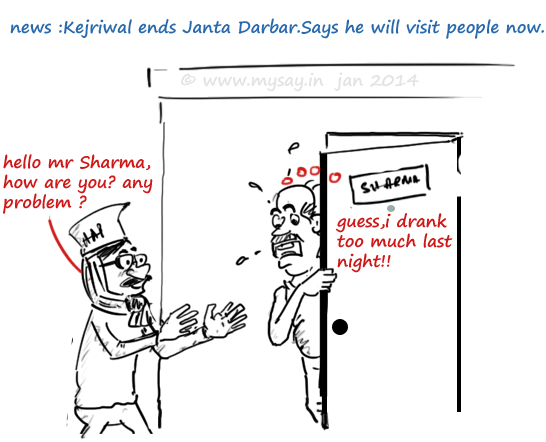 news :Kejriwal ends Janta Darbar.Says he will visit people now.
© www.mysay.in jan 2014
hello mr Sharma,
how are you? any
problem ?
AAP
SHARMA
guess,i drank
too much last
night!!